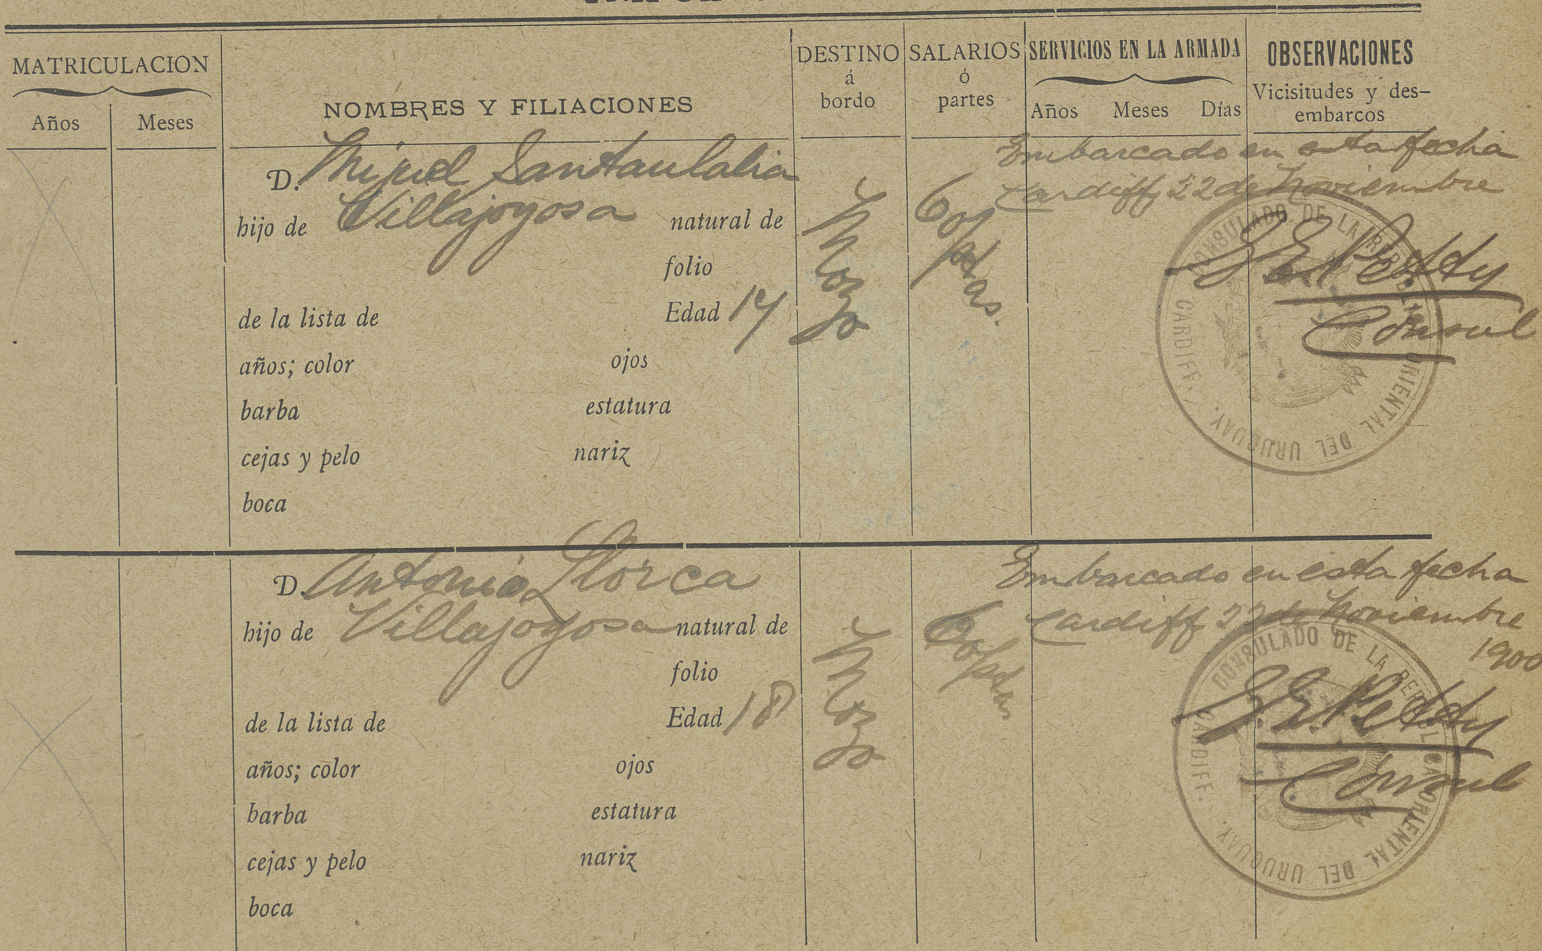 MATRICULACION
Años Meses
NOMBRES Y FILIACIONES
DESTINO
á
bordo
SALARIOS
ó
partes
SERVICIOS EN LA ARMADA
Años Meses Días
OBSERVACIONES
Vicisitudes y des-
embarcos
D. Miguel Santaulalia
hijo de Villajoyosa natural de
folio
de la lista de Edad 17
años; color ojos
barba estatura
cejas y pelo nariz
boca
Mozo
60 ptas.
Embarcado en esta fecha
Cardiff 22 de Noviembre
Consul
CONSULADO DE LA REPUBLICA ORIENTAL DEL URUGUAY.
CARDIFF.
D. Antonio Llorca
hijo de Villajoyosa natural de
folio
de la lista de Edad 18
años; color ojos
barba estatura
cejas y pelo nariz
boca
Mozo
60 ptas
Embarcado en esta fecha
Cardiff 22 de Noviembre
1900
Consul
CONSULADO DE LA REPUBLICA ORIENTAL DEL URUGUAY.
CARDIFF.